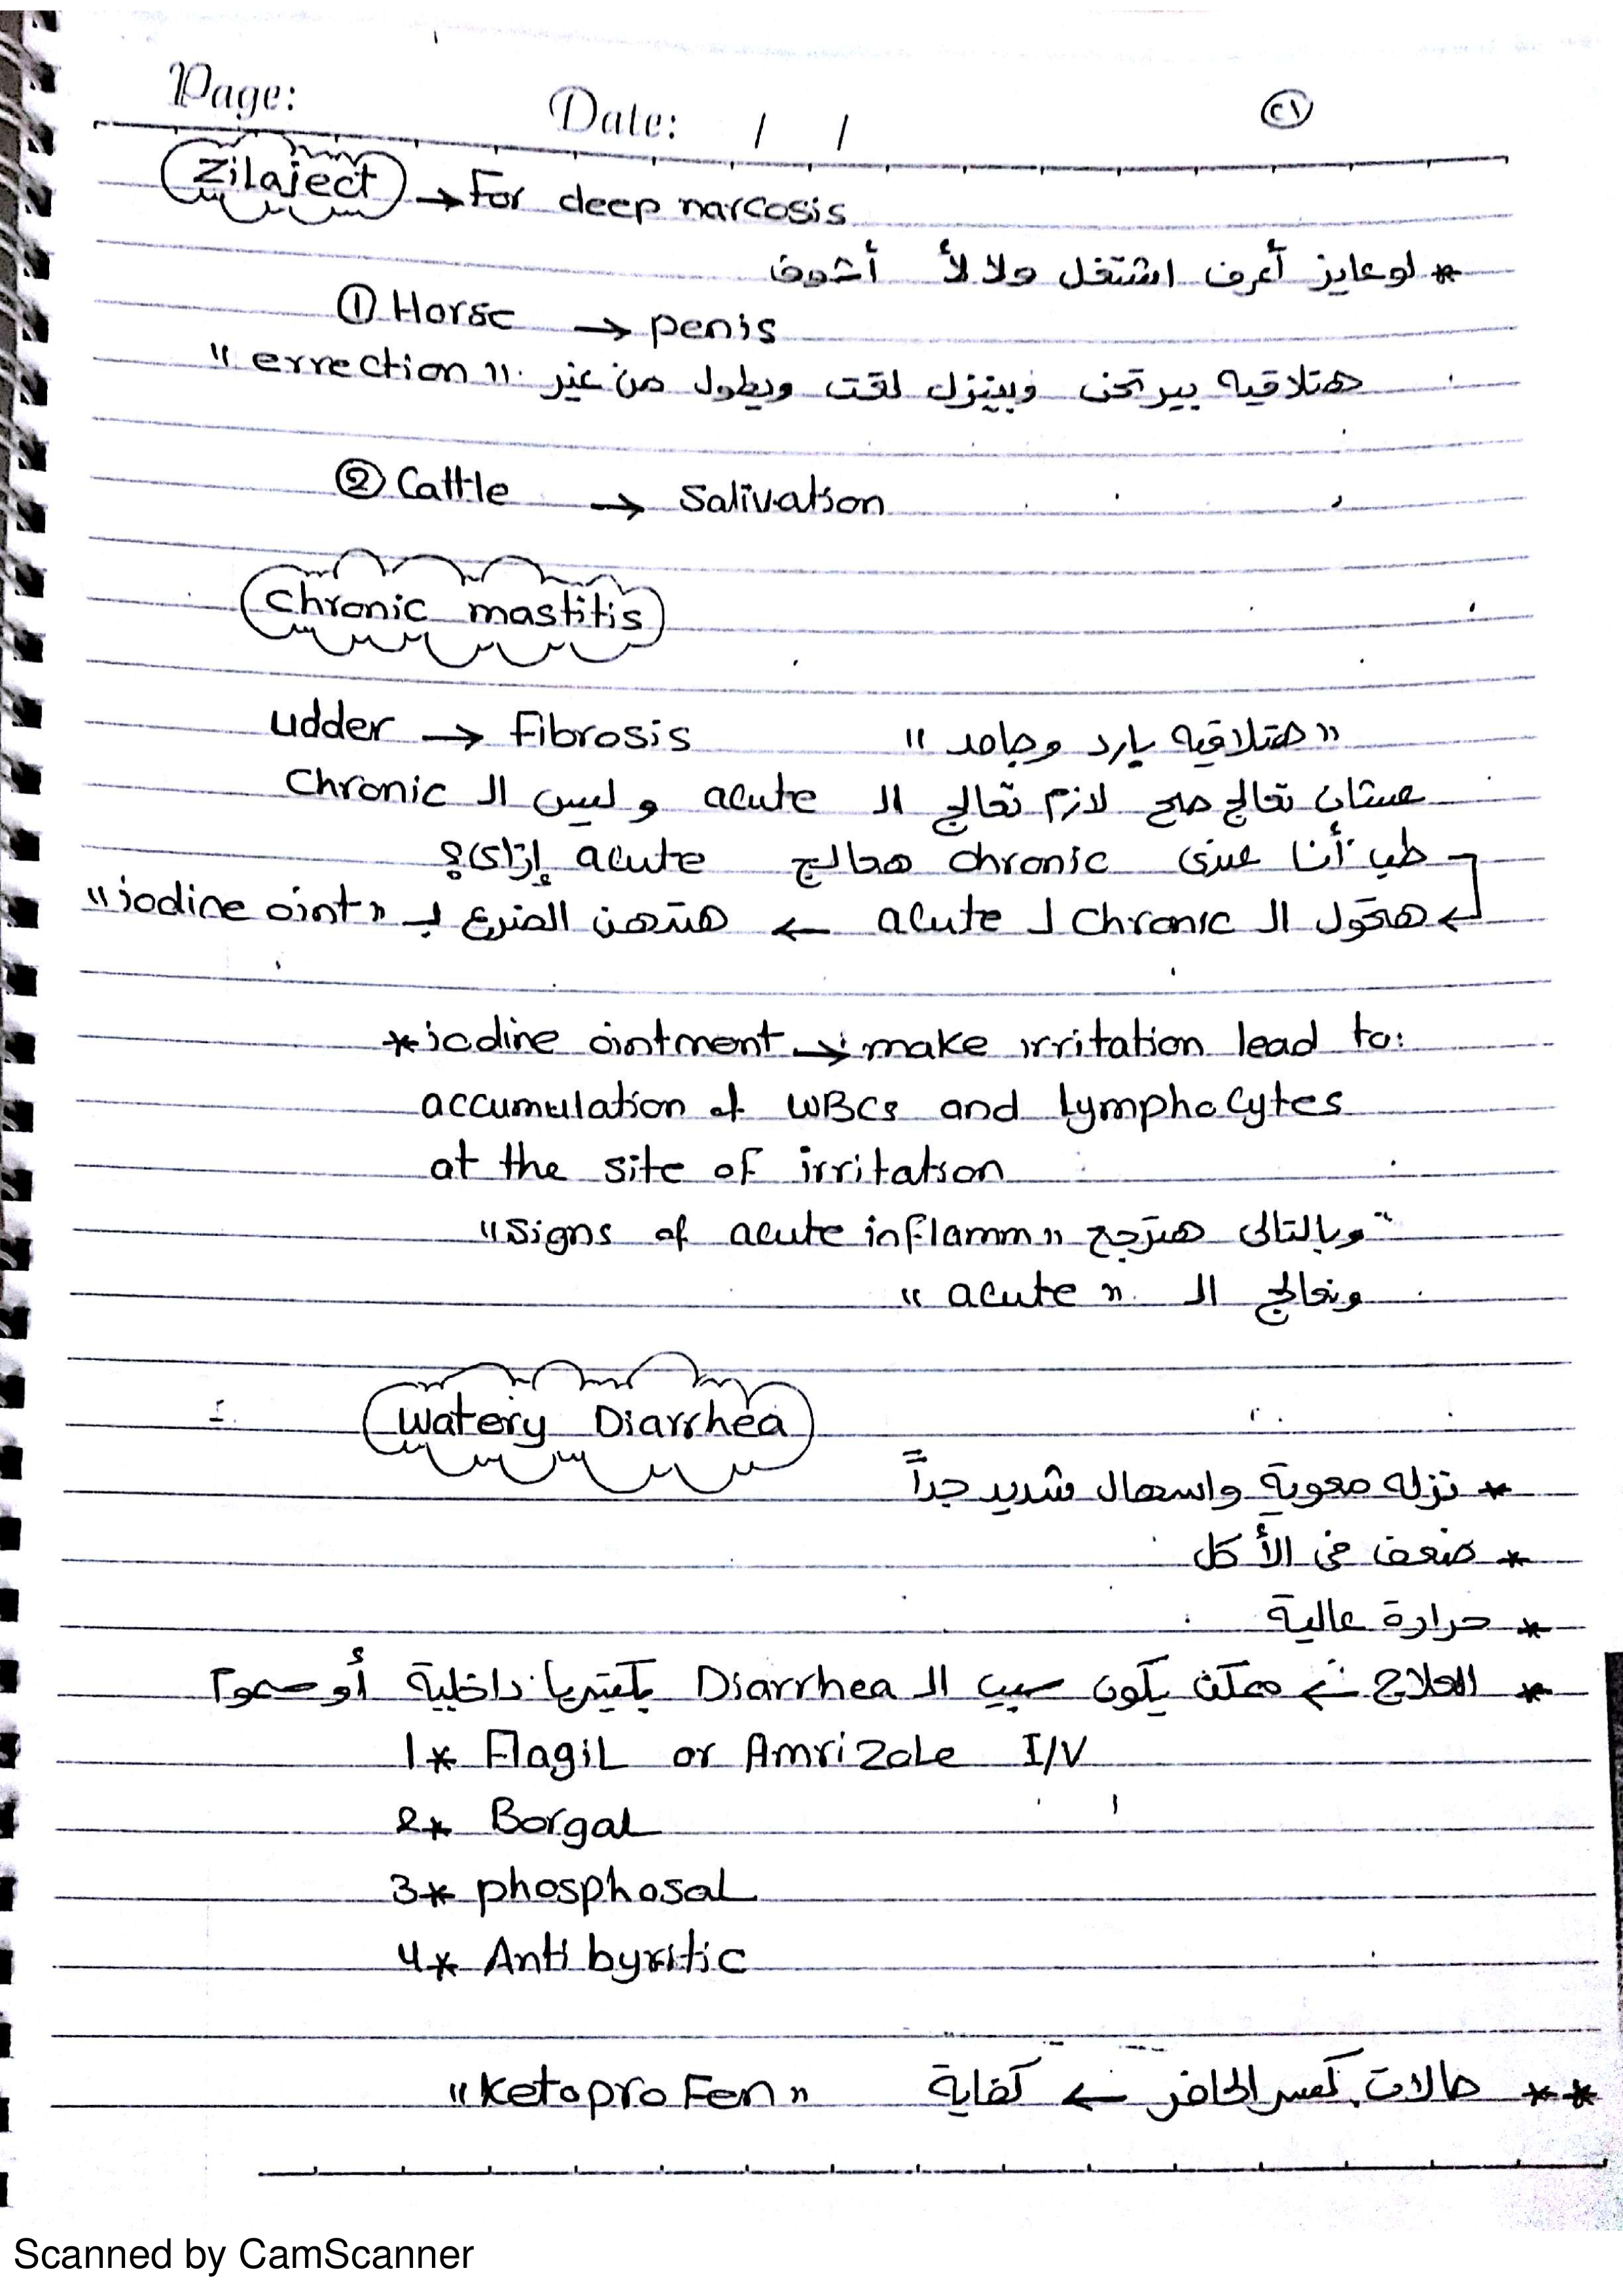 Page: Date: / /
٢١
Zilaject → For deep narcosis
* لو عايز أعرف اشتغل ولا لأ أشوف
① Horse → penis
هتلاقيه بيرتخى وبينزل لقت ويطول من غير "errection"
② Cattle → Salivation
Chronic mastitis
udder → Fibrosis "هتلاقيه بارد وجامد"
عشان تعالج صح لازم تعالج الـ acute وليس الـ Chronic
طب أنا عندى chronic هعالج acute إزاى؟
هحول الـ Chronic لـ acute ← هندهن الضرع بـ "iodine oint"
* iodine ointment → make irritation lead to:
accumulation of WBCs and Lymphocytes
at the site of irritation
وبالتالى هترجع "Signs of acute inflamm"
ونعالج الـ "acute"
Watery Diarrhea
* نزله معوية واسهال شديد جداً
* ضعف فى الأكل
* حرارة عالية
* العلاج ← ممكن يكون سبب الـ Diarrhea بكتيريا داخلية أو سموم
1* Flagil or Amrizole I/V
2* Borgal
3* phosphosal
4* Anti byritic
** حالات كسر الحافر ← كفاية "Ketoprofen"
Scanned by CamScanner